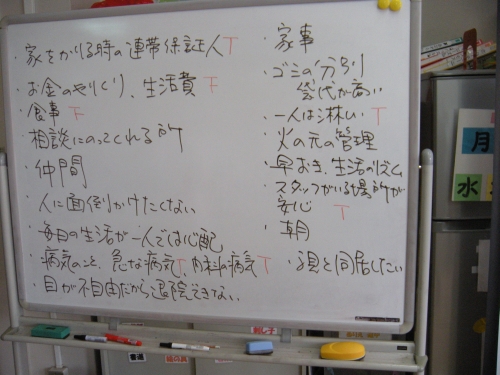 ・家をかりる時の連帯保証人 T
・お金のやりくり、生活費 T
・食事 T
・相談にのってくれる所
・仲間
・人に面倒かけたくない
・毎日の生活が一人では心配
・病気のこと、急な病気 T 内科の病気 T
・目が不自由だから退院できない。
・家事
・ゴミの分別
袋代が高い
・一人は淋しい T
・火の元の管理
・早おき、生活のリズム
・スタッフがいる場所が
安心 T
・朝
・親と同居したい
月
水